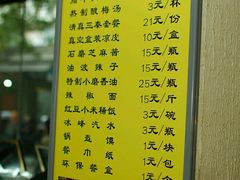 热制酸梅汤 3元/杯
清真三泰套餐 21元/份
真空盒装凉皮 10元/盒
石磨芝麻酱 15元/瓶
油泼辣子 15元/瓶
特制小磨香油 25元/瓶
辣椒面 15元/斤
红豆小米稀饭 3元/碗
冰峰汽水 3元/瓶
锅盔馍 1元/块
餐巾纸 1元/包
环保餐盒 1元/